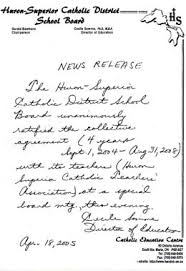 Huron-Superior Catholic District
School Board
Chairperson
Director of Education
HS
NEWS RELEASE
The Huron-Superior
Catholic District School
Board unanimously
ratified the collective
agreement (4 years
Sept 1, 2004 - Aug 31, 2008)
with its teachers (Huron
Superior Catholic Teachers'
Association) at a special
board mtg this evening.
Director of Education
Apr. 18, 2005
Catholic Education Centre